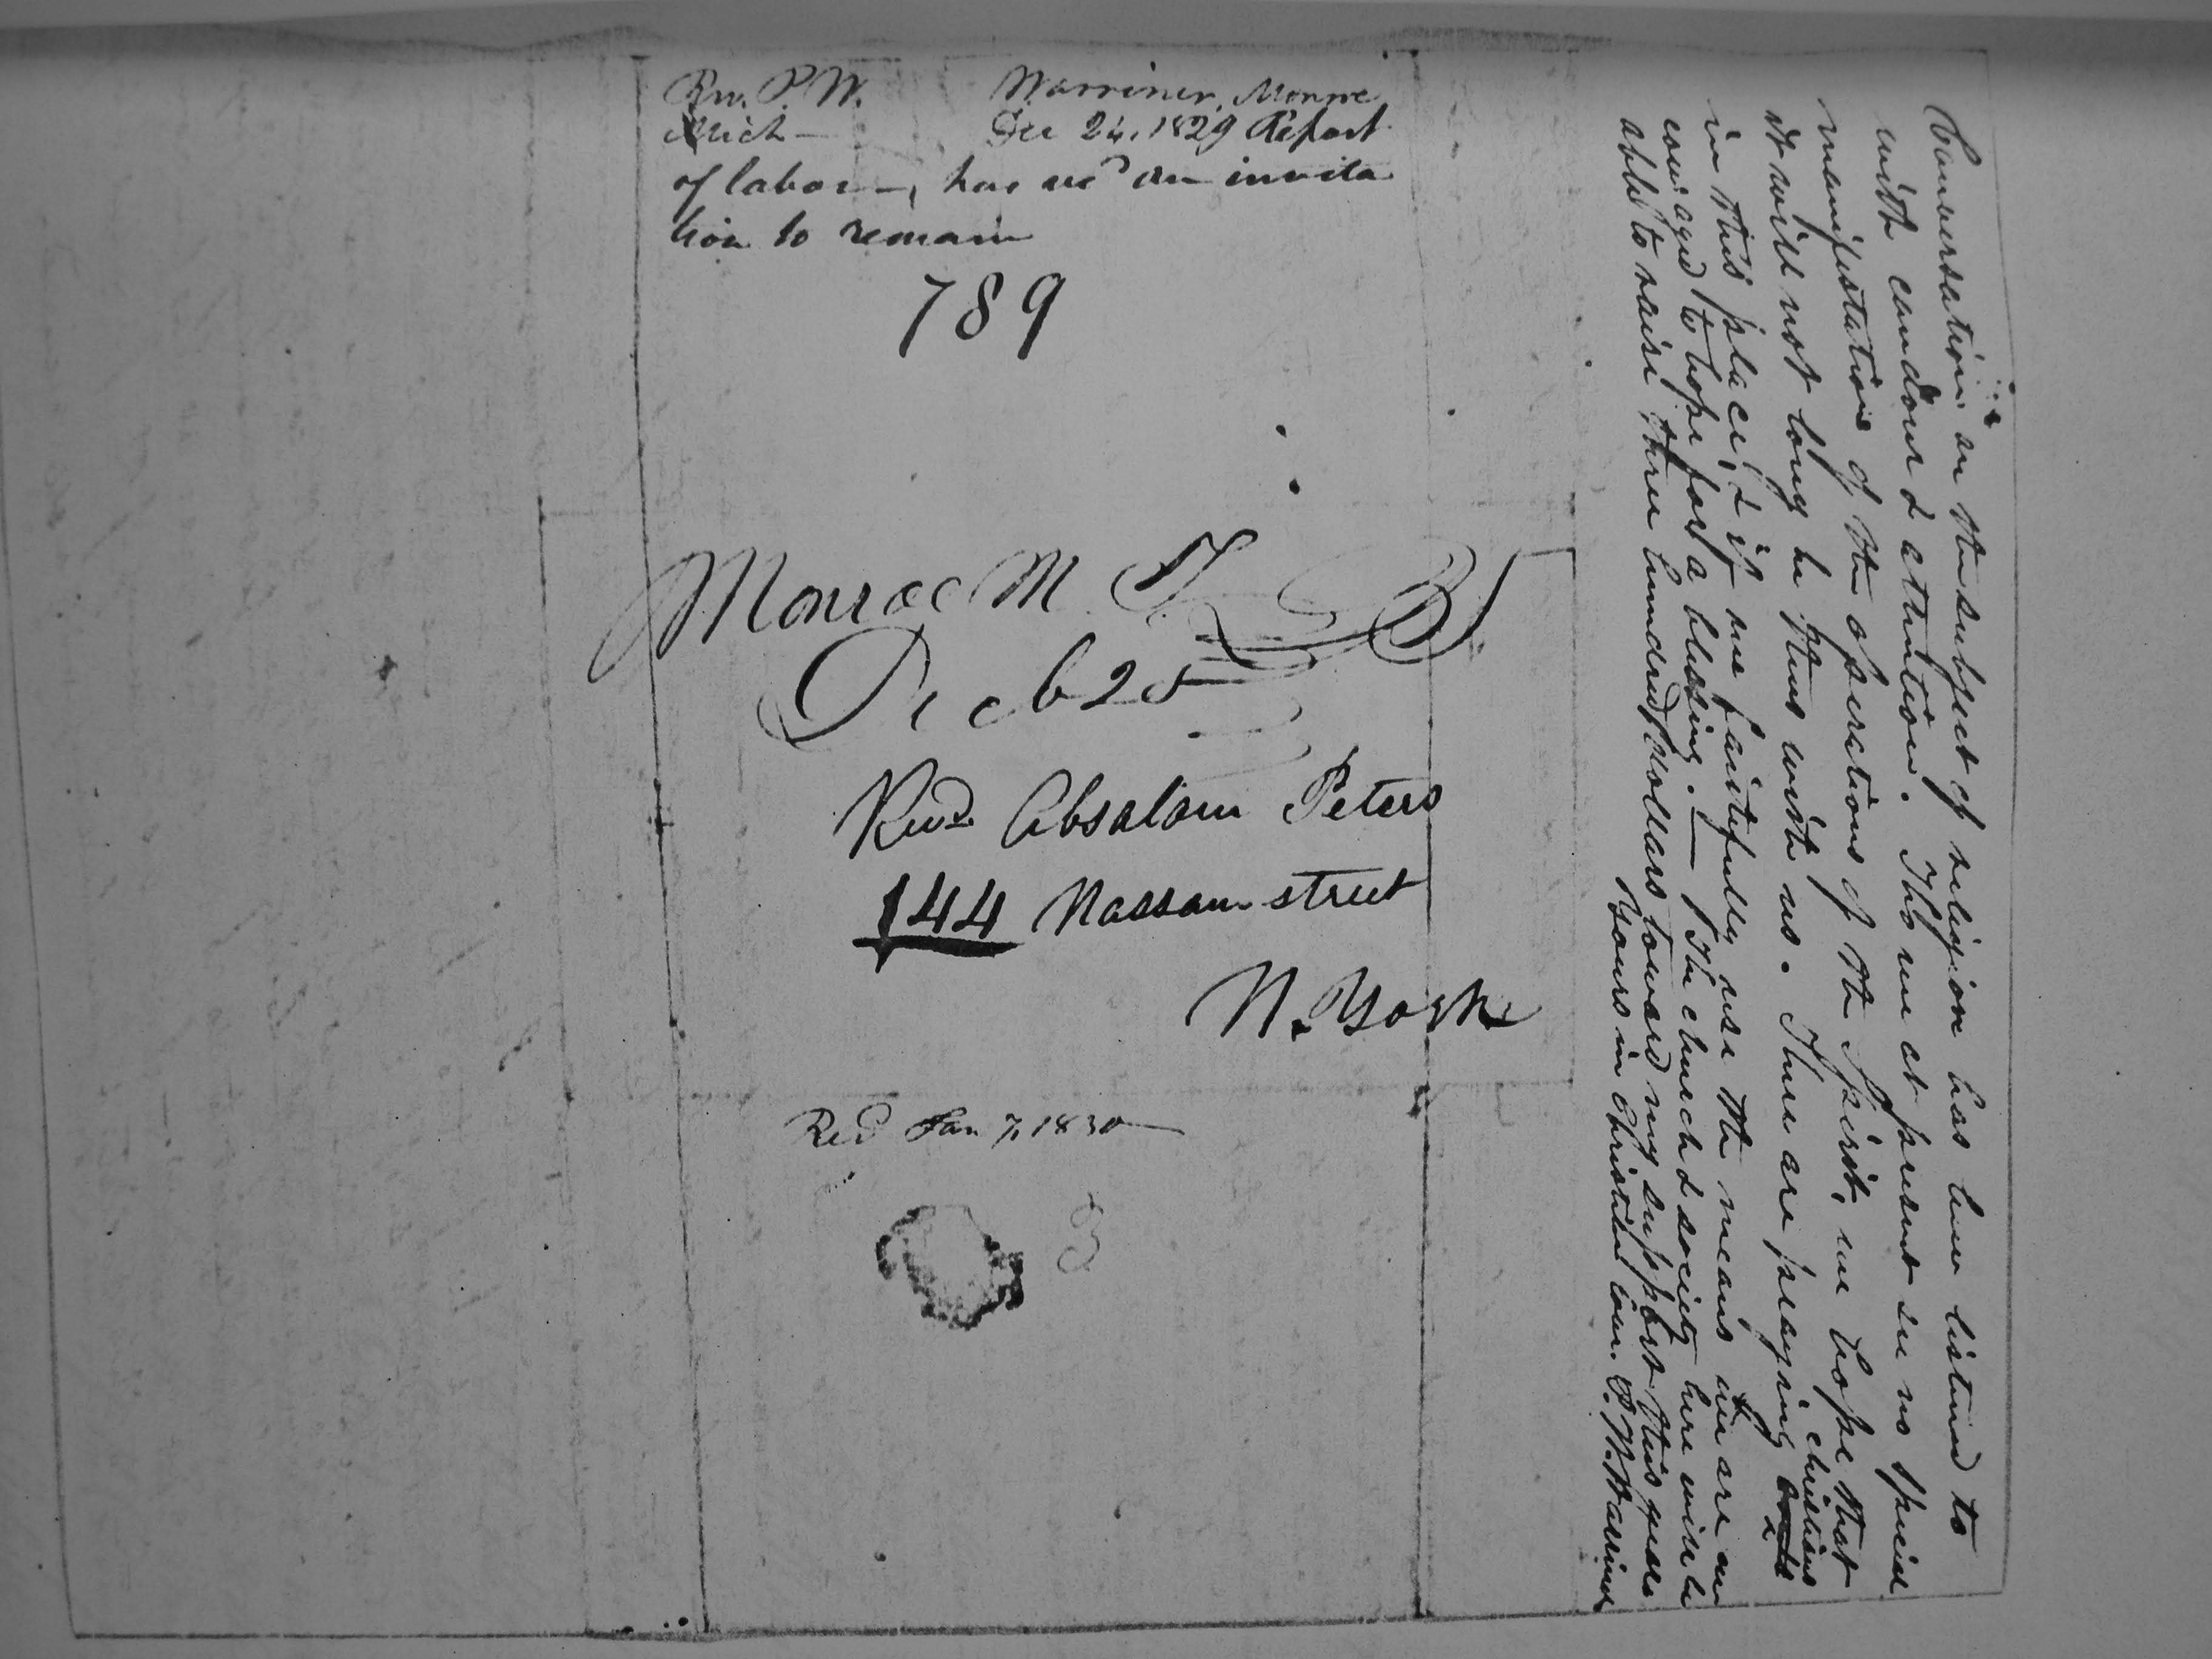 Rev. P. W. Warriner, Monroe
Mich — Dec 24, 1829 Report
of labor —, has recd an invita
tion to remain
789
Monroe M. T.
Dec 25
Revd. Absalom Peters
144 Nassau street
N. York
Recd Jan 7, 1830
3
Conversation on the subject of religion has been listened to
with candour & attention. Tho we at present see no special
manifestation of the operations of the Spirit, we hope that
it will not long be thus with us. There are praying christians
in this place, & if we faithfully use the means we are en
couraged to hope for a blessing. — The church & society here will be
able to raise three hundred dollars toward my support this year
Yours in Christian love. P. W. Warriner